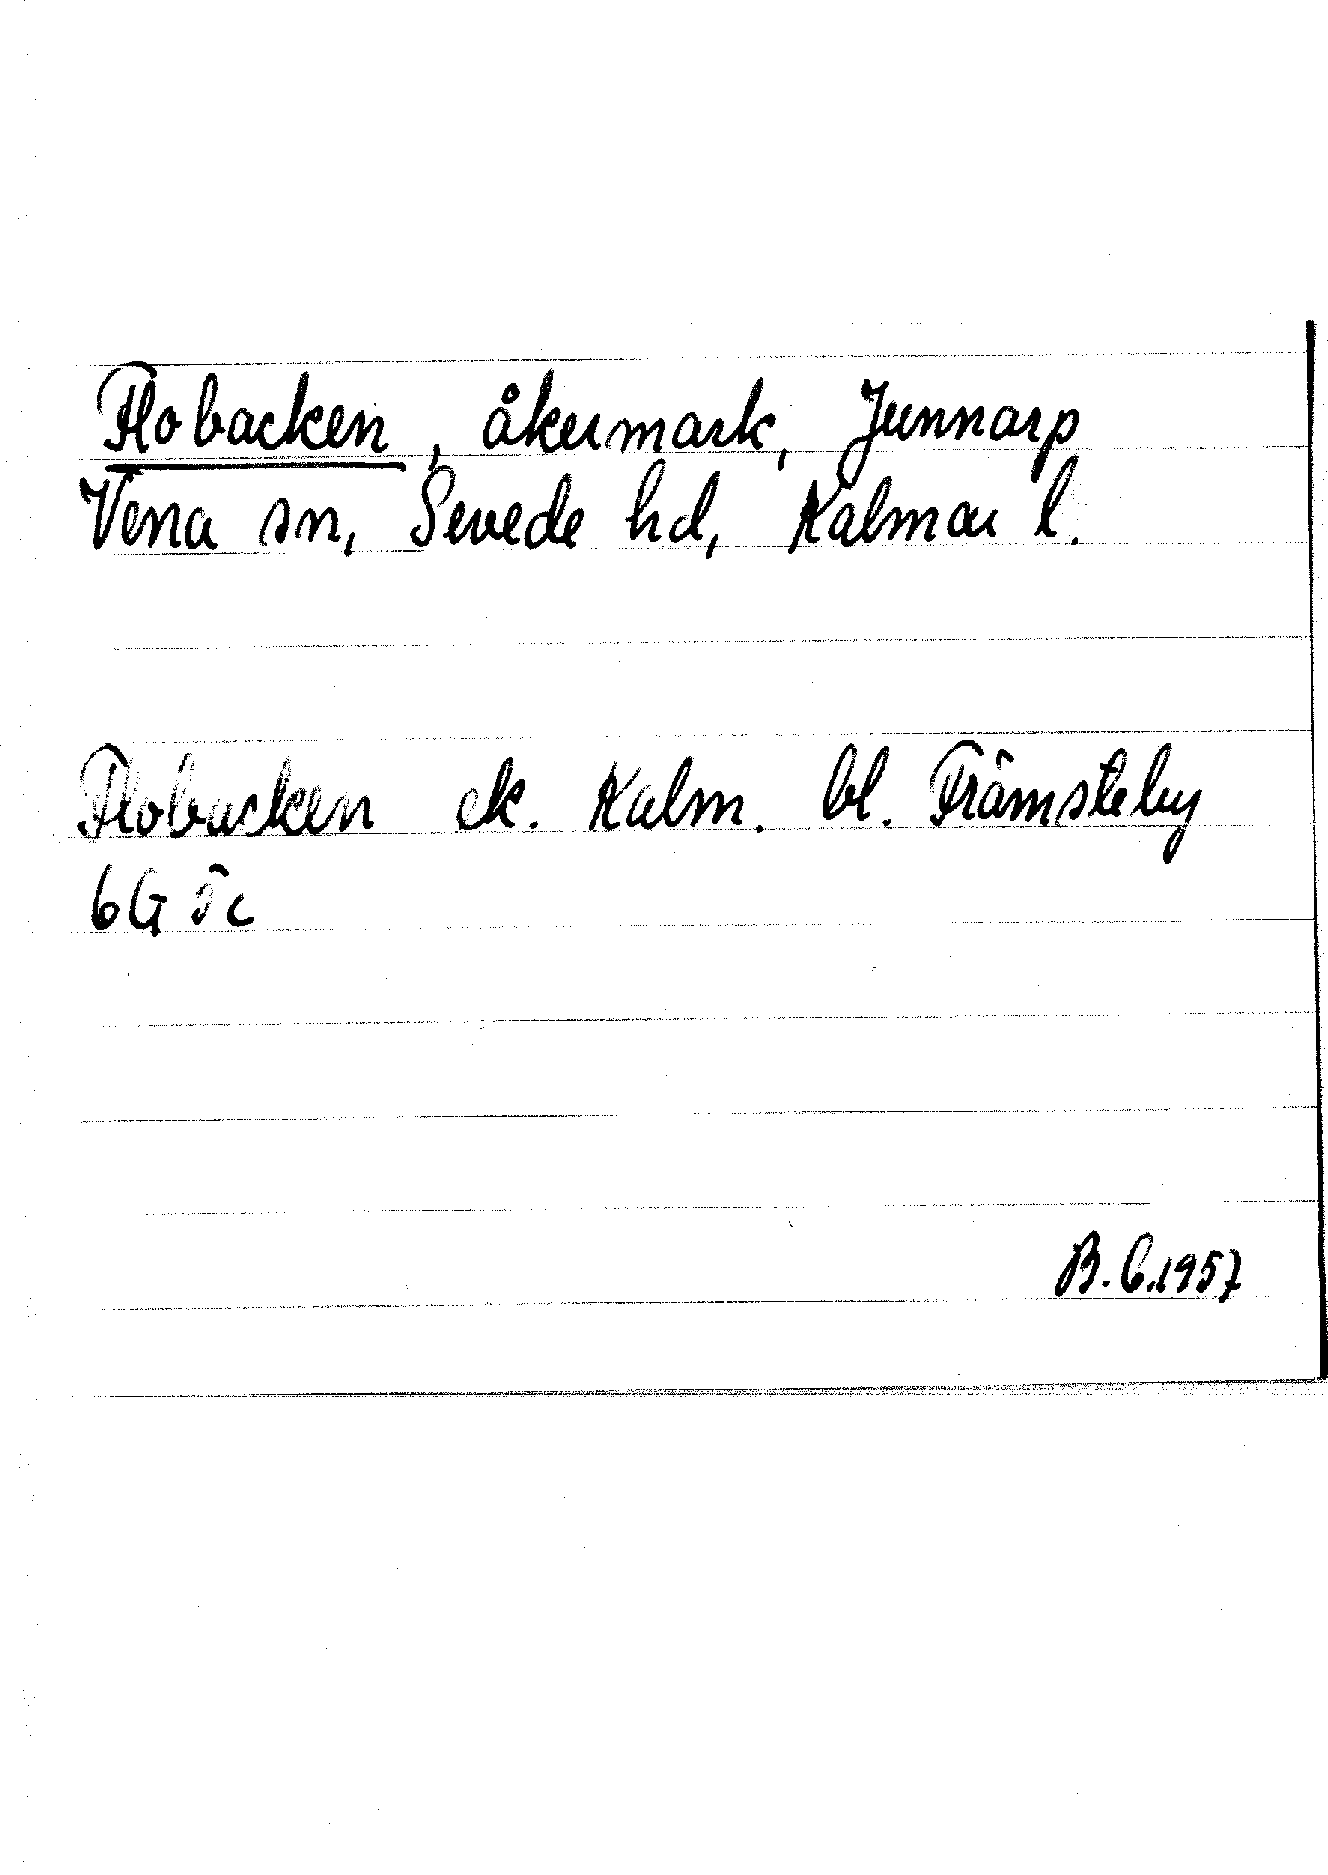 Flobacken, åkermark, Junnarp
Vena sn, Sevede hd, Kalmar l.
Flobacken ek. Kalm. bl. Främsteby
6G 5c
B.C.1957